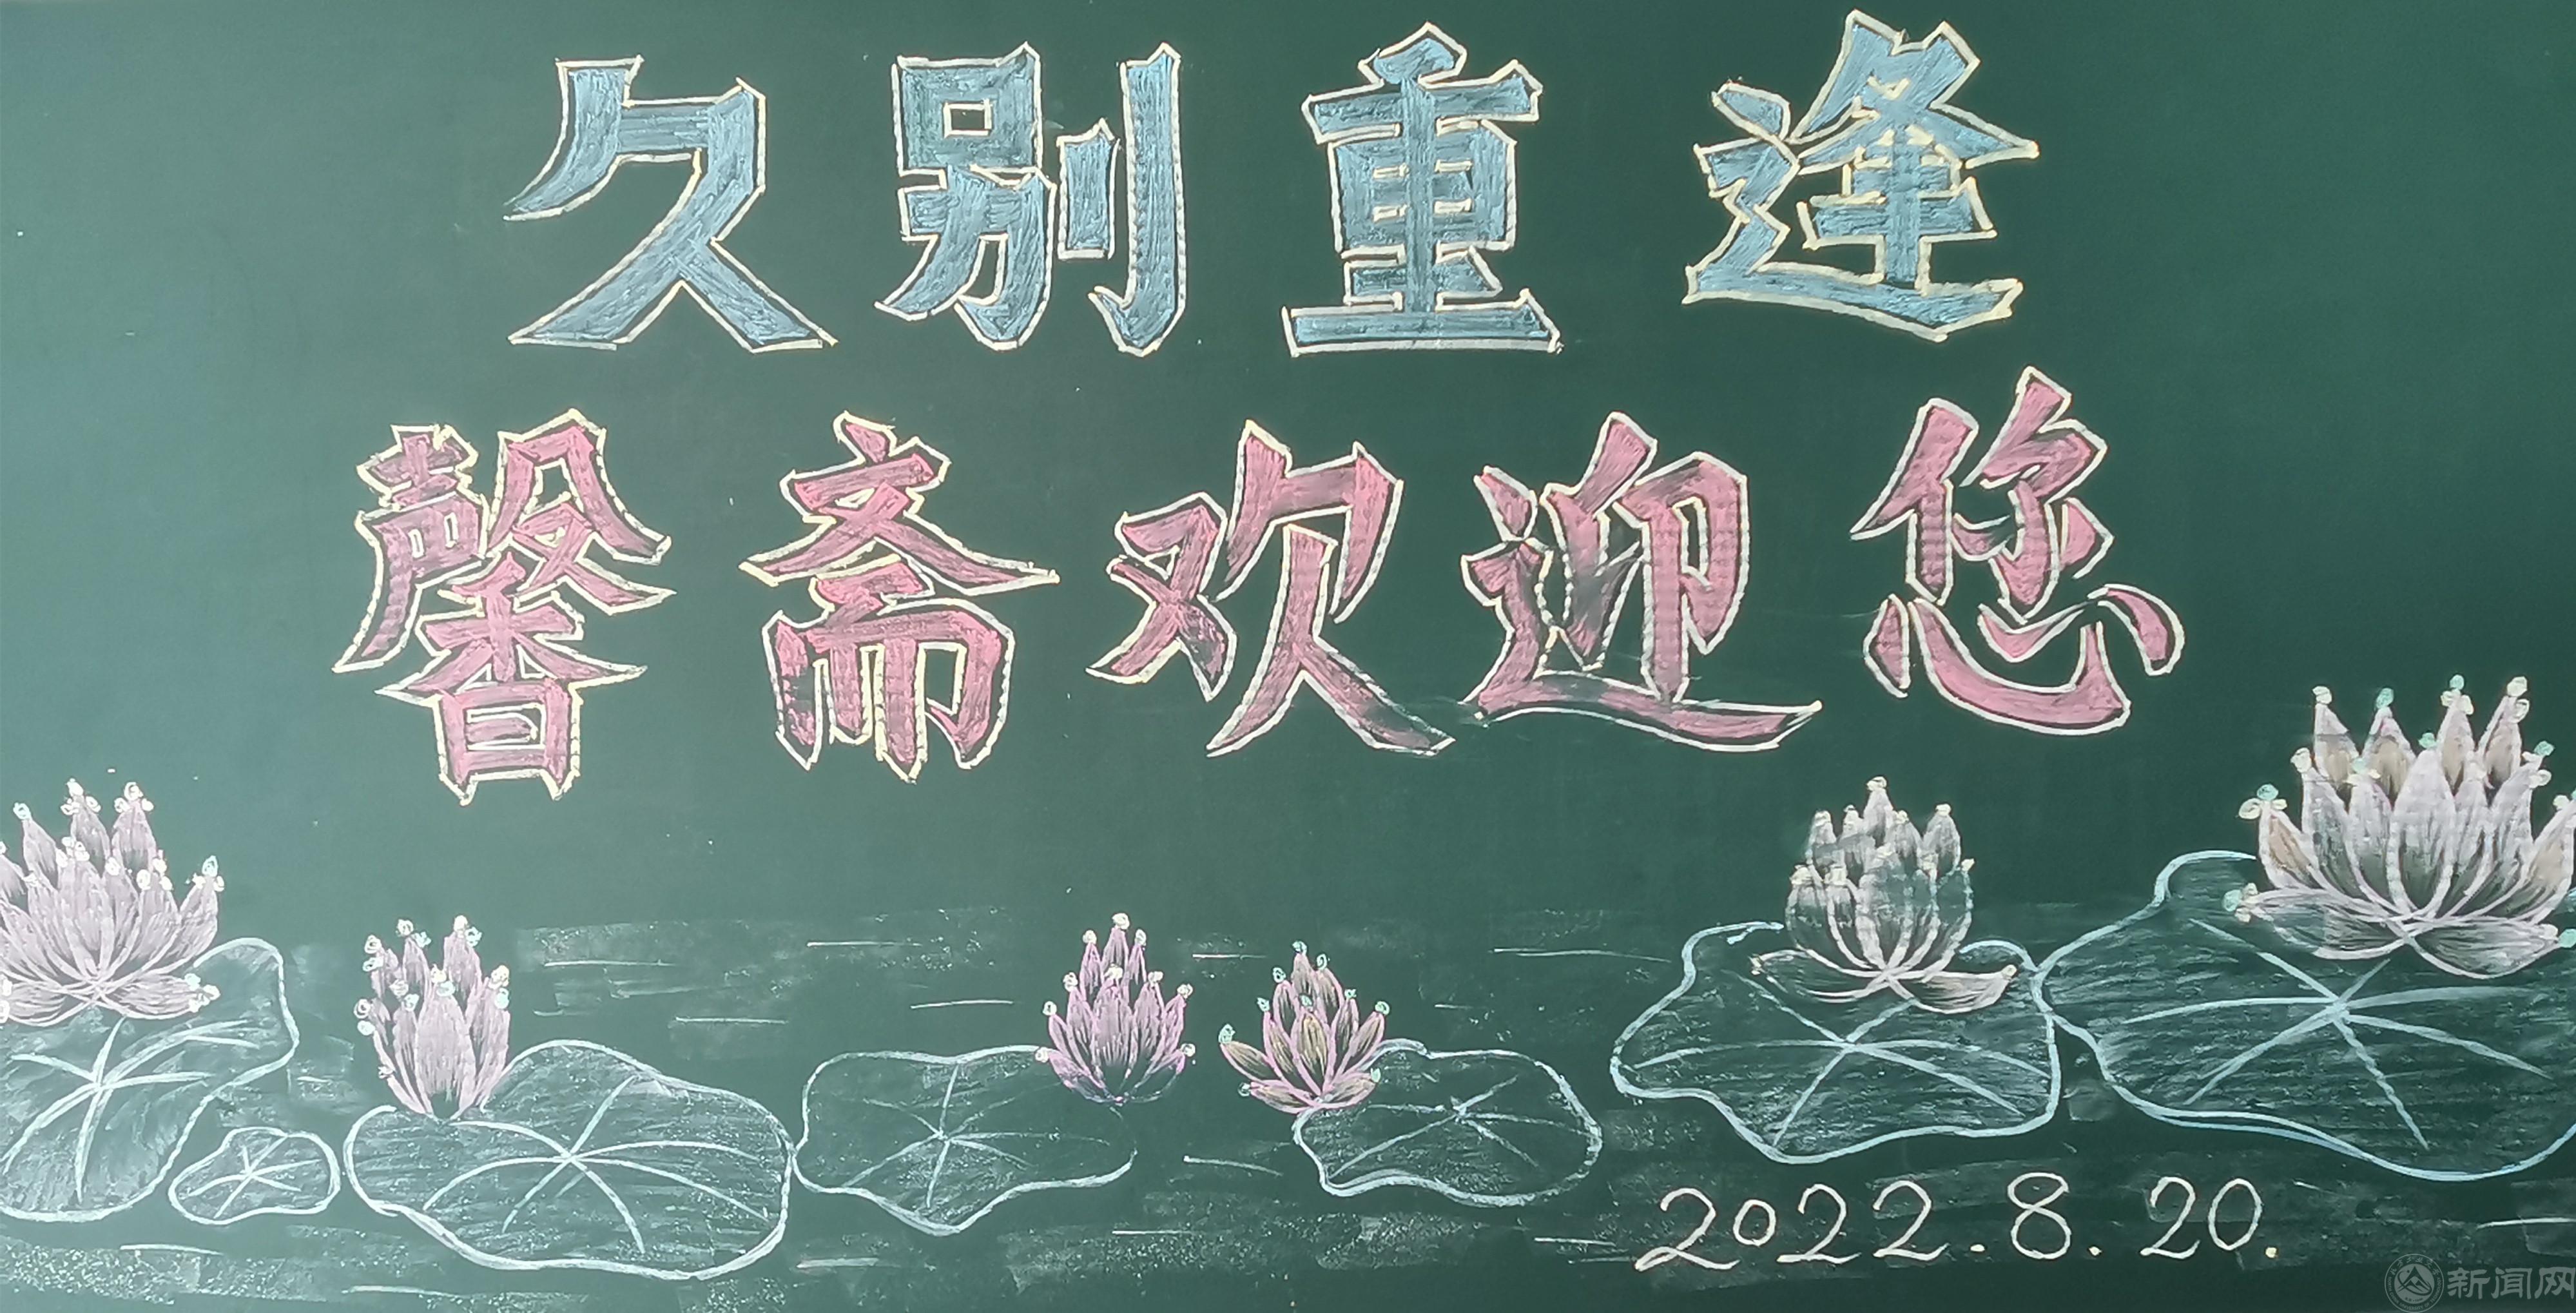 久别重逢
馨斋欢迎您
2022.8.20.
新闻网